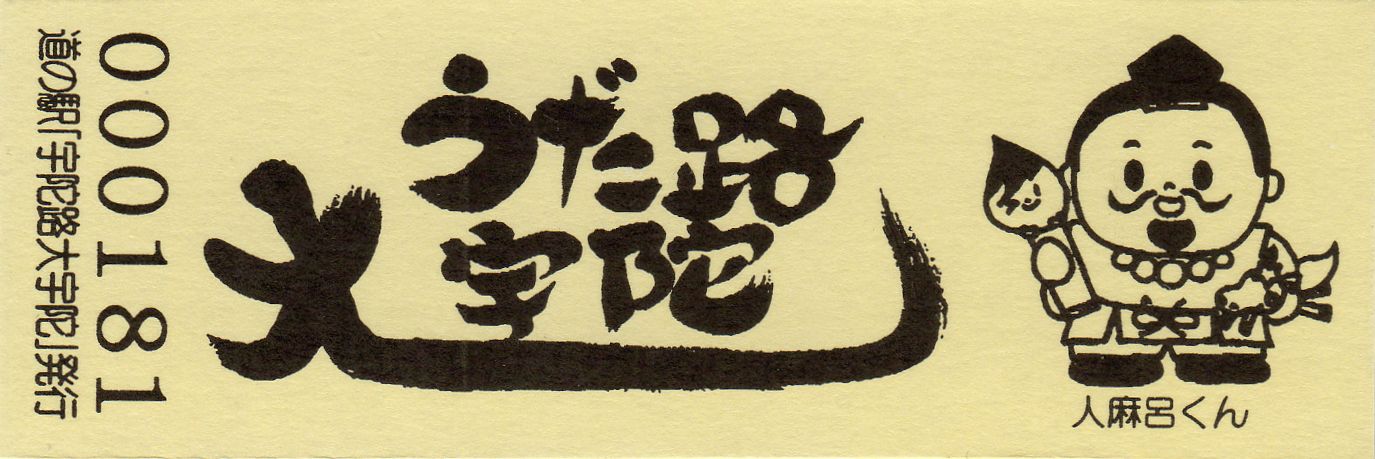 000181
道の駅「宇陀路大宇陀」発行
うだ路
大宇陀
人麻呂くん